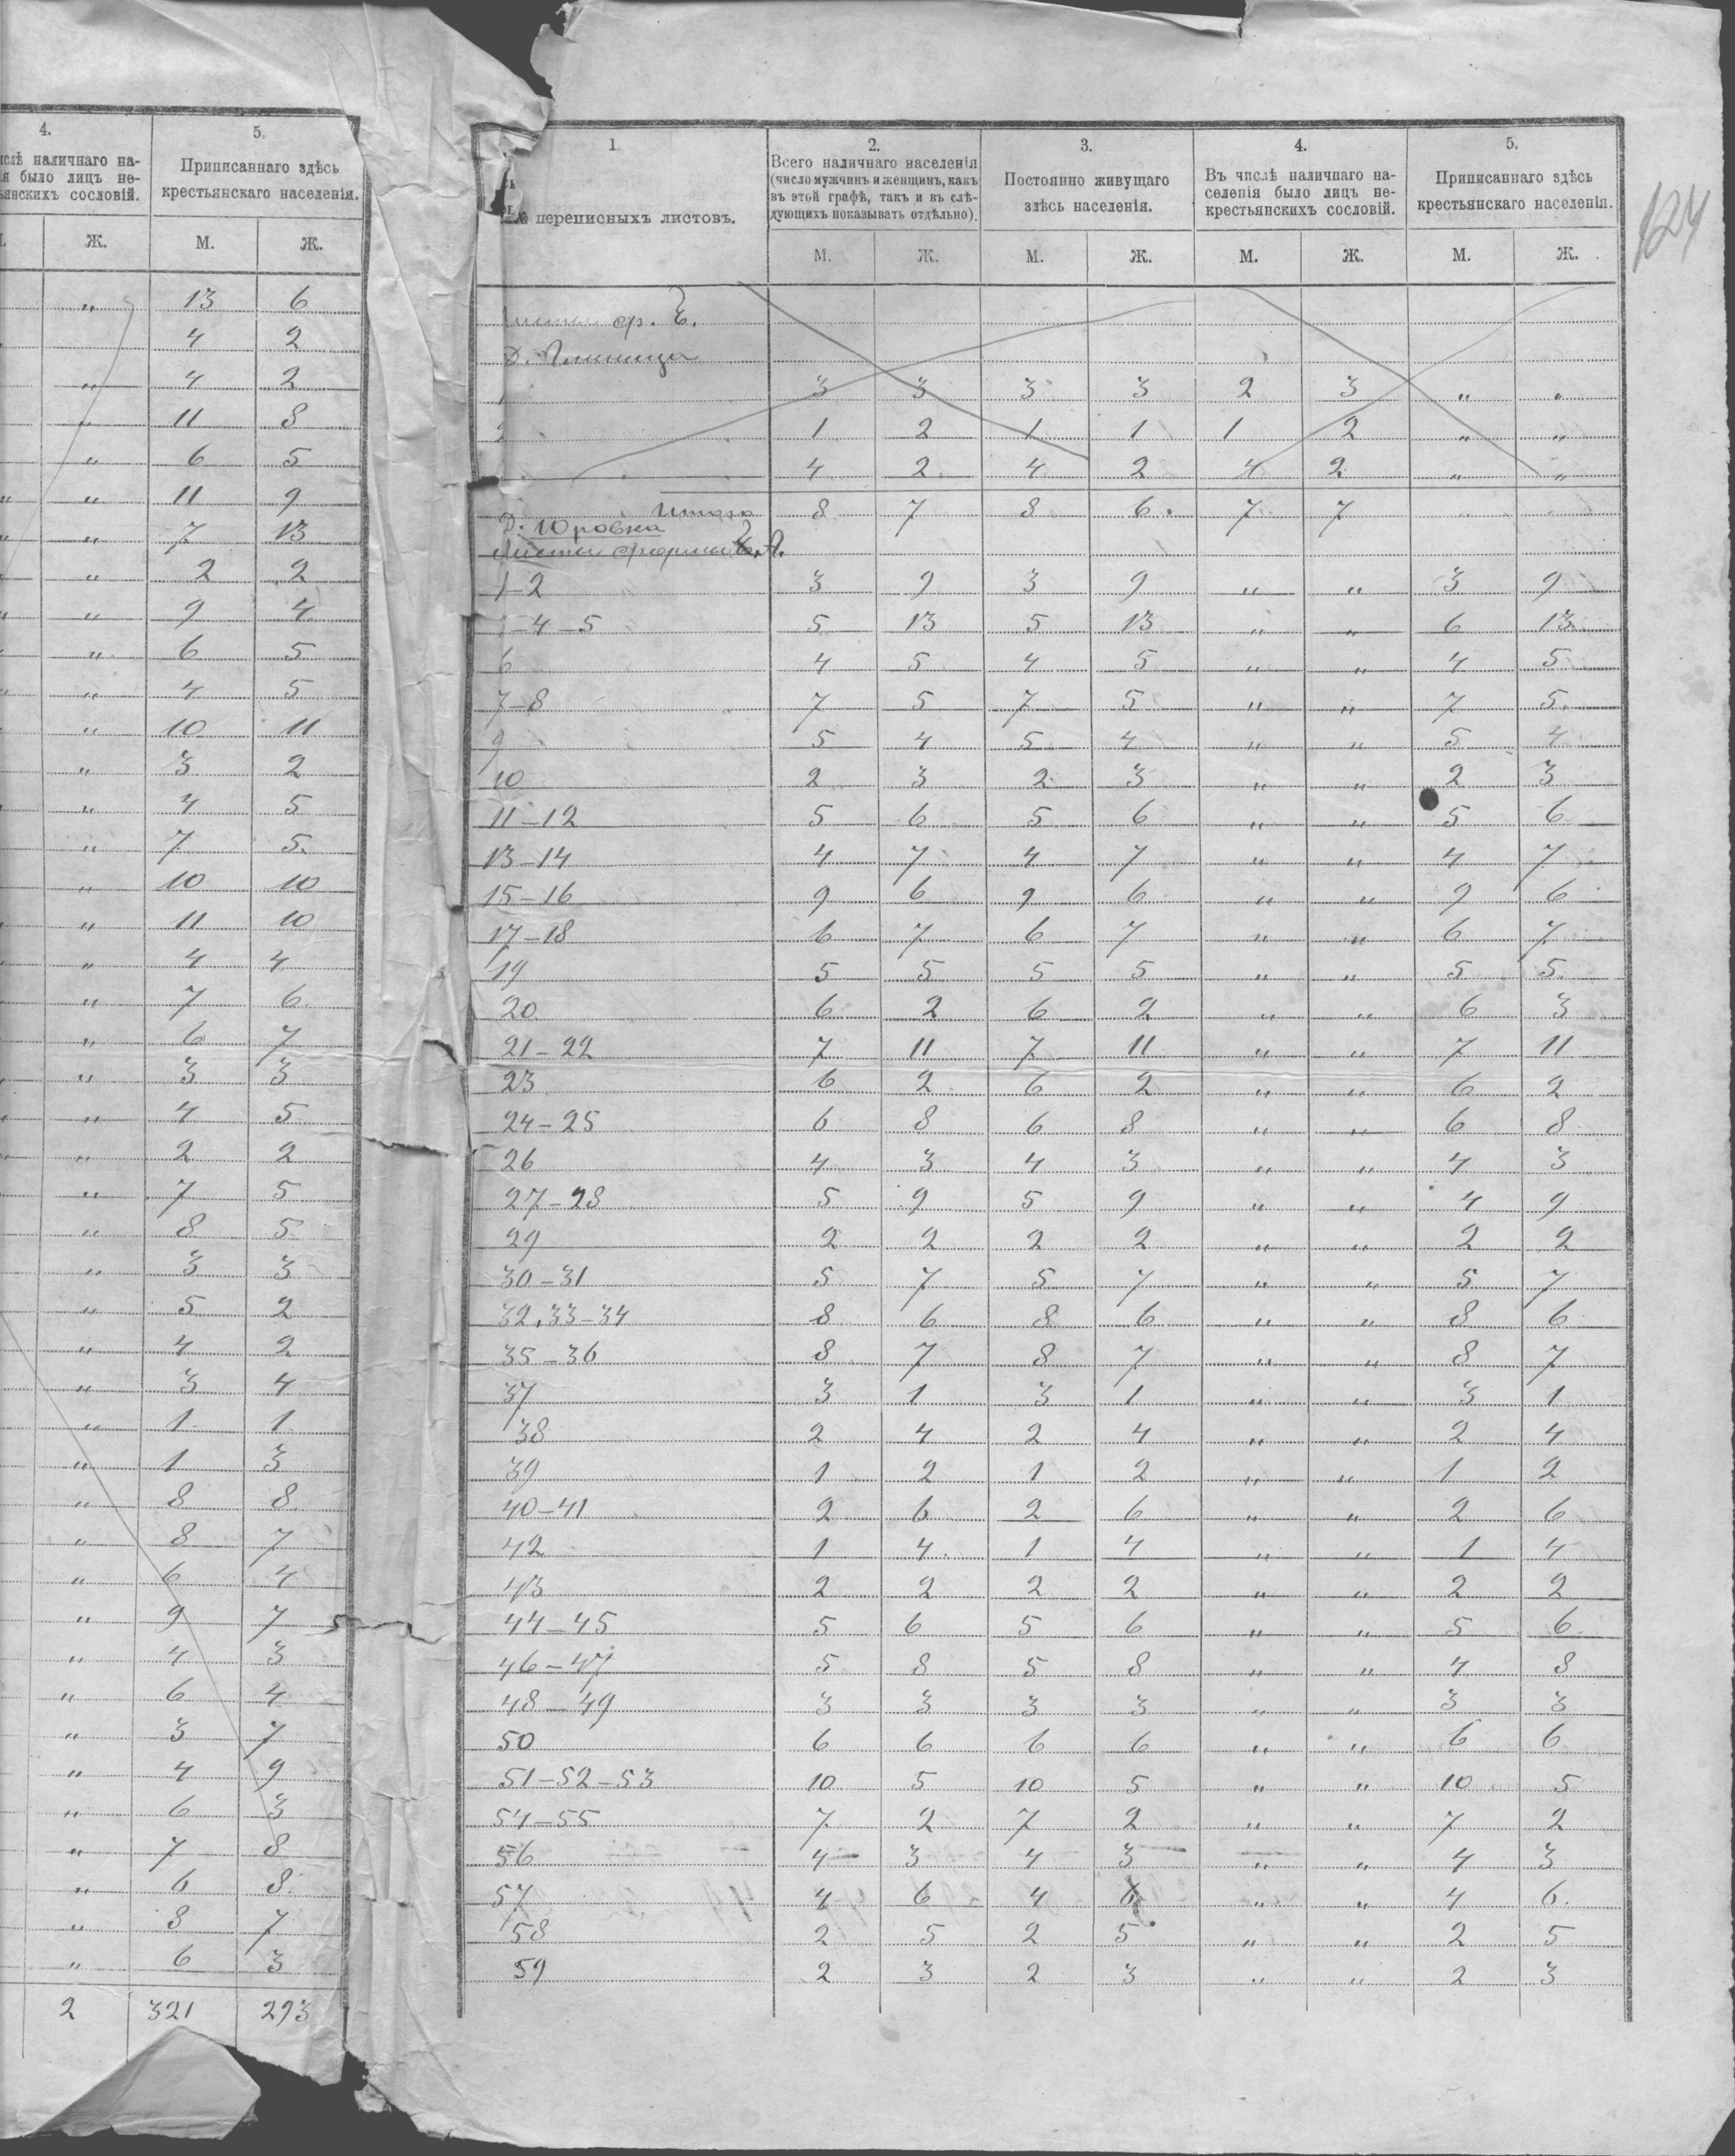 4. 5.
числѣ наличнаго на-
я было лицъ не-
ьянскихъ сословій.
Приписаннаго здѣсь
крестьянскаго населенія.
Ж. М. Ж.
„ 13 6
4 2
„ 4 2
„ 11 8
„ 6 5
„ „ 11 9
„ „ 7 13
„ 2 2
„ „ 9 4
„ 6 5
„ 4 5
„ 10 11
„ 3 2
„ 4 5
„ 7 5
„ 10 10
„ 11 10
„ 4 4
„ 7 6
„ 6 7
„ 3 3
„ 4 5
„ 2 2
„ 7 5
„ 8 5
„ 3 3
„ 5 2
„ 4 2
„ 3 4
„ 1 1
„ 1 3
„ 8 8
„ 8 7
„ 6 4
„ 9 7
„ 4 3
„ 6 4
„ 3 7
„ 4 9
„ 6 3
„ 7 8
„ 6 8
„ 8 7
„ 6 3
2 321 293
124
1 2. 3. 4. 5.
№ переписныхъ листовъ.
Всего наличнаго населенія
(число мужчинъ и женщинъ, какъ
въ этой графѣ, такъ и въ слѣ-
дующихъ показывать отдѣльно).
Постоянно живущаго
здѣсь населенія.
Въ числѣ наличнаго на-
селенія было лицъ не-
крестьянскихъ сословій.
Приписаннаго здѣсь
крестьянскаго населенія.
М. Ж. М. Ж. М. Ж. М. Ж.
ф. Б.
Д.
3 3 3 3 2 3 „ „
2 1 2 1 1 1 2 „ „
4 2 4 2 4 2 „ „
Итого 8 7 8 6 7 7
Д. Юровка
Листы формы А.
1-2 3 9 3 9 „ „ 3 9
-4-5 5 13 5 13 „ „ 6 13
6 4 5 4 5 „ „ 4 5
7-8 7 5 7 5 „ „ 7 5
9 5 4 5 4 „ „ 5 4
10 2 3 2 3 „ „ 2 3
11-12 5 6 5 6 „ „ 5 6
13-14 4 7 4 7 „ „ 4 7
15-16 9 6 9 6 „ „ 9 6
17-18 6 7 6 7 „ „ 6 7
19 5 5 5 5 „ „ 5 5
20 6 2 6 2 „ „ 6 3
21-22 7 11 7 11 „ „ 7 11
23 6 2 6 2 „ „ 6 2
24-25 6 8 6 8 „ „ 6 8
26 4 3 4 3 „ „ 4 3
27-28 5 9 5 9 „ „ 4 9
29 2 2 2 2 „ „ 2 2
30-31 5 7 5 7 „ „ 5 7
32,33-34 8 6 8 6 „ „ 8 6
35-36 8 7 8 7 „ „ 8 7
37 3 1 3 1 „ „ 3 1
38 2 4 2 4 „ „ 2 4
39 1 2 1 2 „ „ 1 2
40-41 2 6 2 6 „ „ 2 6
42 1 4 1 4 „ „ 1 4
43 2 2 2 2 „ „ 2 2
44-45 5 6 5 6 „ „ 5 6
46-47 5 8 5 8 „ „ 4 8
48-49 3 3 3 3 „ „ 3 3
50 6 6 6 6 „ „ 6 6
51-52-53 10 5 10 5 „ „ 10 5
54-55 7 2 7 2 „ „ 7 2
56 4 3 4 3 „ „ 4 3
57 4 6 4 6 „ „ 4 6
58 2 5 2 5 „ „ 2 5
59 2 3 2 3 „ „ 2 3